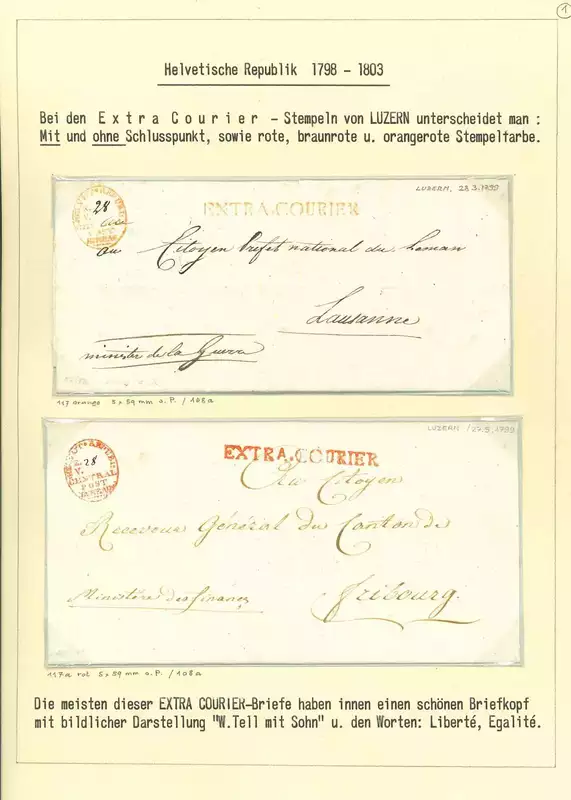 1
Helvetische Republik 1798 - 1803
Bei den Extra Courier - Stempeln von LUZERN unterscheidet man :
Mit und ohne Schlusspunkt, sowie rote, braunrote u. orangerote Stempelfarbe.
LUZERN, 28.3.1799
28
EXTRA.COURIER
au Citoyen Préfet national du Leman
Lausanne
ministre de la Guerre
117 orange 5 x 59 mm o.P. / 108a
LUZERN /27.5.1799
28
V.
CENTRAL
POST
EXTRA.COURIER
Au Citoyen
Receveur Général du Canton de
Fribourg.
Ministère des finances
117a rot 5 x 59 mm o.P. / 108a
Die meisten dieser EXTRA COURIER-Briefe haben innen einen schönen Briefkopf
mit bildlicher Darstellung "W.Tell mit Sohn" u. den Worten: Liberté, Egalité.